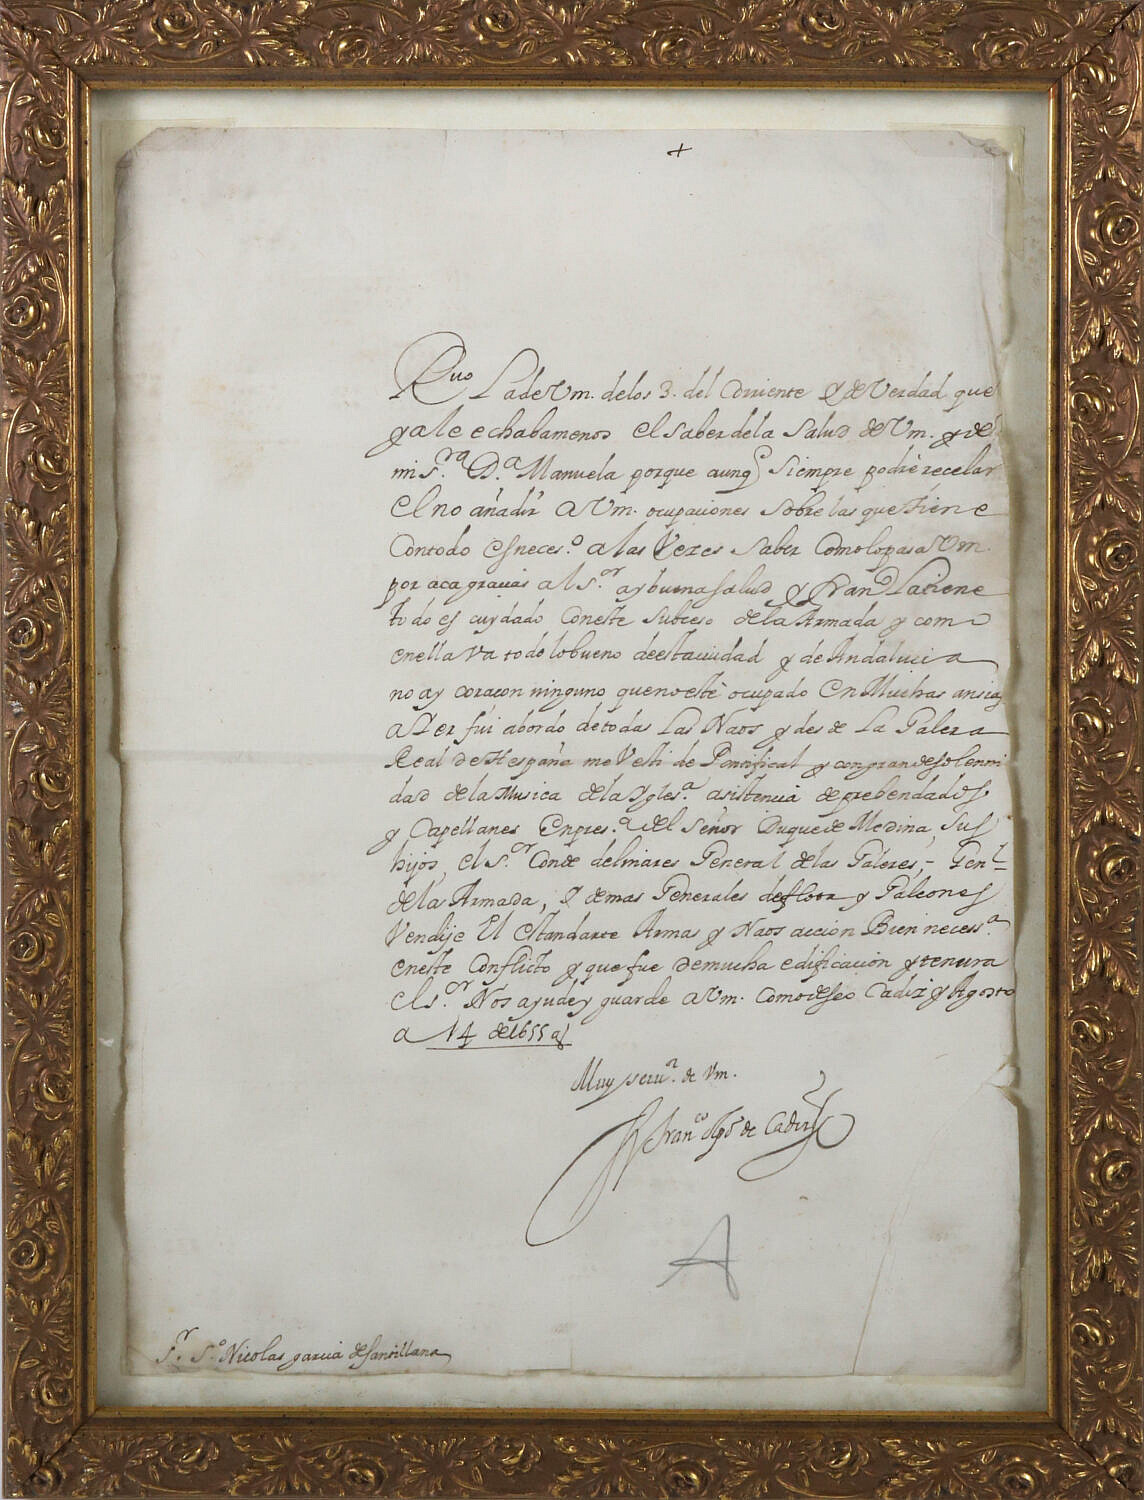 +
Rvo La de Vm. de los 3. del Corriente y de Verdad que
ya le echaba menos el saber de la Salud de Vm. y de
mi s.ra D.a Manuela porque aunq siempre podrè recelar
el no añadir a Vm. ocupaciones sobre las que tiene
Con todo es neces.o a las Vezes saber Como lo pasa Vm.
por aca gracias al s.or ay buena salud y
todo es cuydado con este subceso de la Armada y como
en ella va todo lo bueno de esta ciudad y de Andalucia
no ay coraçon ninguno que no estè ocupado en Muchas ansias
a Yer fui abordo de todas las Naos y desde La Galera
Real de Hespaña me Vesti de Pontifical y con gran de solemni
dad de la Musica de la Ygles.a asistencia de prebendados
y Capellanes en pres.a del Señor Duque de Medina, sus
hijos, el s.or Conde de linares General de las Galeres, Gen.l
de la Armada, y demas Generales de flota y Galeones
Vendije El estandarte Armas y Naos accion Bien necess.a
en este Conflicto y que fue de mucha edificacion y tenura
el s.or Nos ayude y guarde a Vm. como deseo Cadiz y Agosto
a 14 de 1655 as
Muy seru.r de Vm.
Fran.co Obpo de Cadiz
A
S.r S.o Nicolas garcia de Santillana